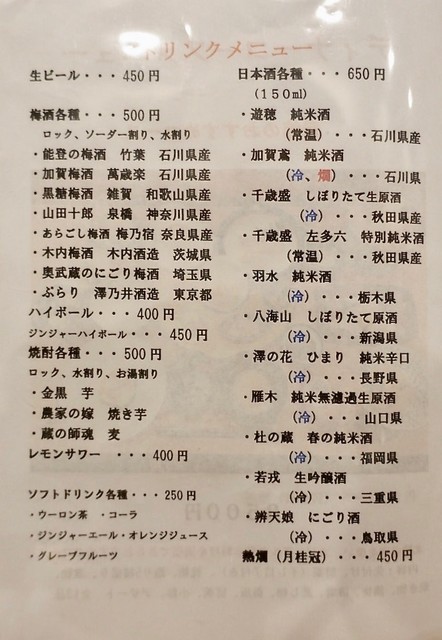 ドリンクメニュー
生ビール・・・450円
梅酒各種・・・500円
ロック、ソーダー割り、水割り
・能登の梅酒 竹葉 石川県産
・加賀梅酒 萬歳楽 石川県産
・黒糖梅酒 雑賀 和歌山県産
・山田十郎 泉橋 神奈川県産
・あらごし梅酒 梅乃宿 奈良県産
・木内梅酒 木内酒造 茨城県
・奥武蔵のにごり梅酒 埼玉県
・ぶらり 澤乃井酒造 東京都
ハイボール・・・400円
ジンジャーハイボール・・・450円
焼酎各種・・・500円
ロック、水割り、お湯割り
・金黒 芋
・農家の嫁 焼き芋
・蔵の師魂 麦
レモンサワー ・・・400円
ソフトドリンク各種・・・250円
・ウーロン茶 ・コーラ
・ジンジャーエール・オレンジジュース
・グレープフルーツ
日本酒各種・・・650円
(150ml)
・遊穂 純米酒
(常温)・・・石川県産
・加賀鳶 純米酒
(冷、燗)・・・石川県
・千歳盛 しぼりたて生原酒
(冷)・・・秋田県産
・千歳盛 左多六 特別純米酒
(常温)・・・秋田県産
・羽水 純米酒
(冷)・・・栃木県
・八海山 しぼりたて原酒
(冷)・・・新潟県
・澤の花 ひまり 純米辛口
(冷)・・・長野県
・雁木 純米無濾過生原酒
(冷)・・・山口県
・杜の蔵 春の純米酒
(冷)・・・福岡県
・若戎 生吟醸酒
(冷)・・・三重県
・辨天娘 にごり酒
(冷)・・・鳥取県
熱燗(月桂冠)・・・450円